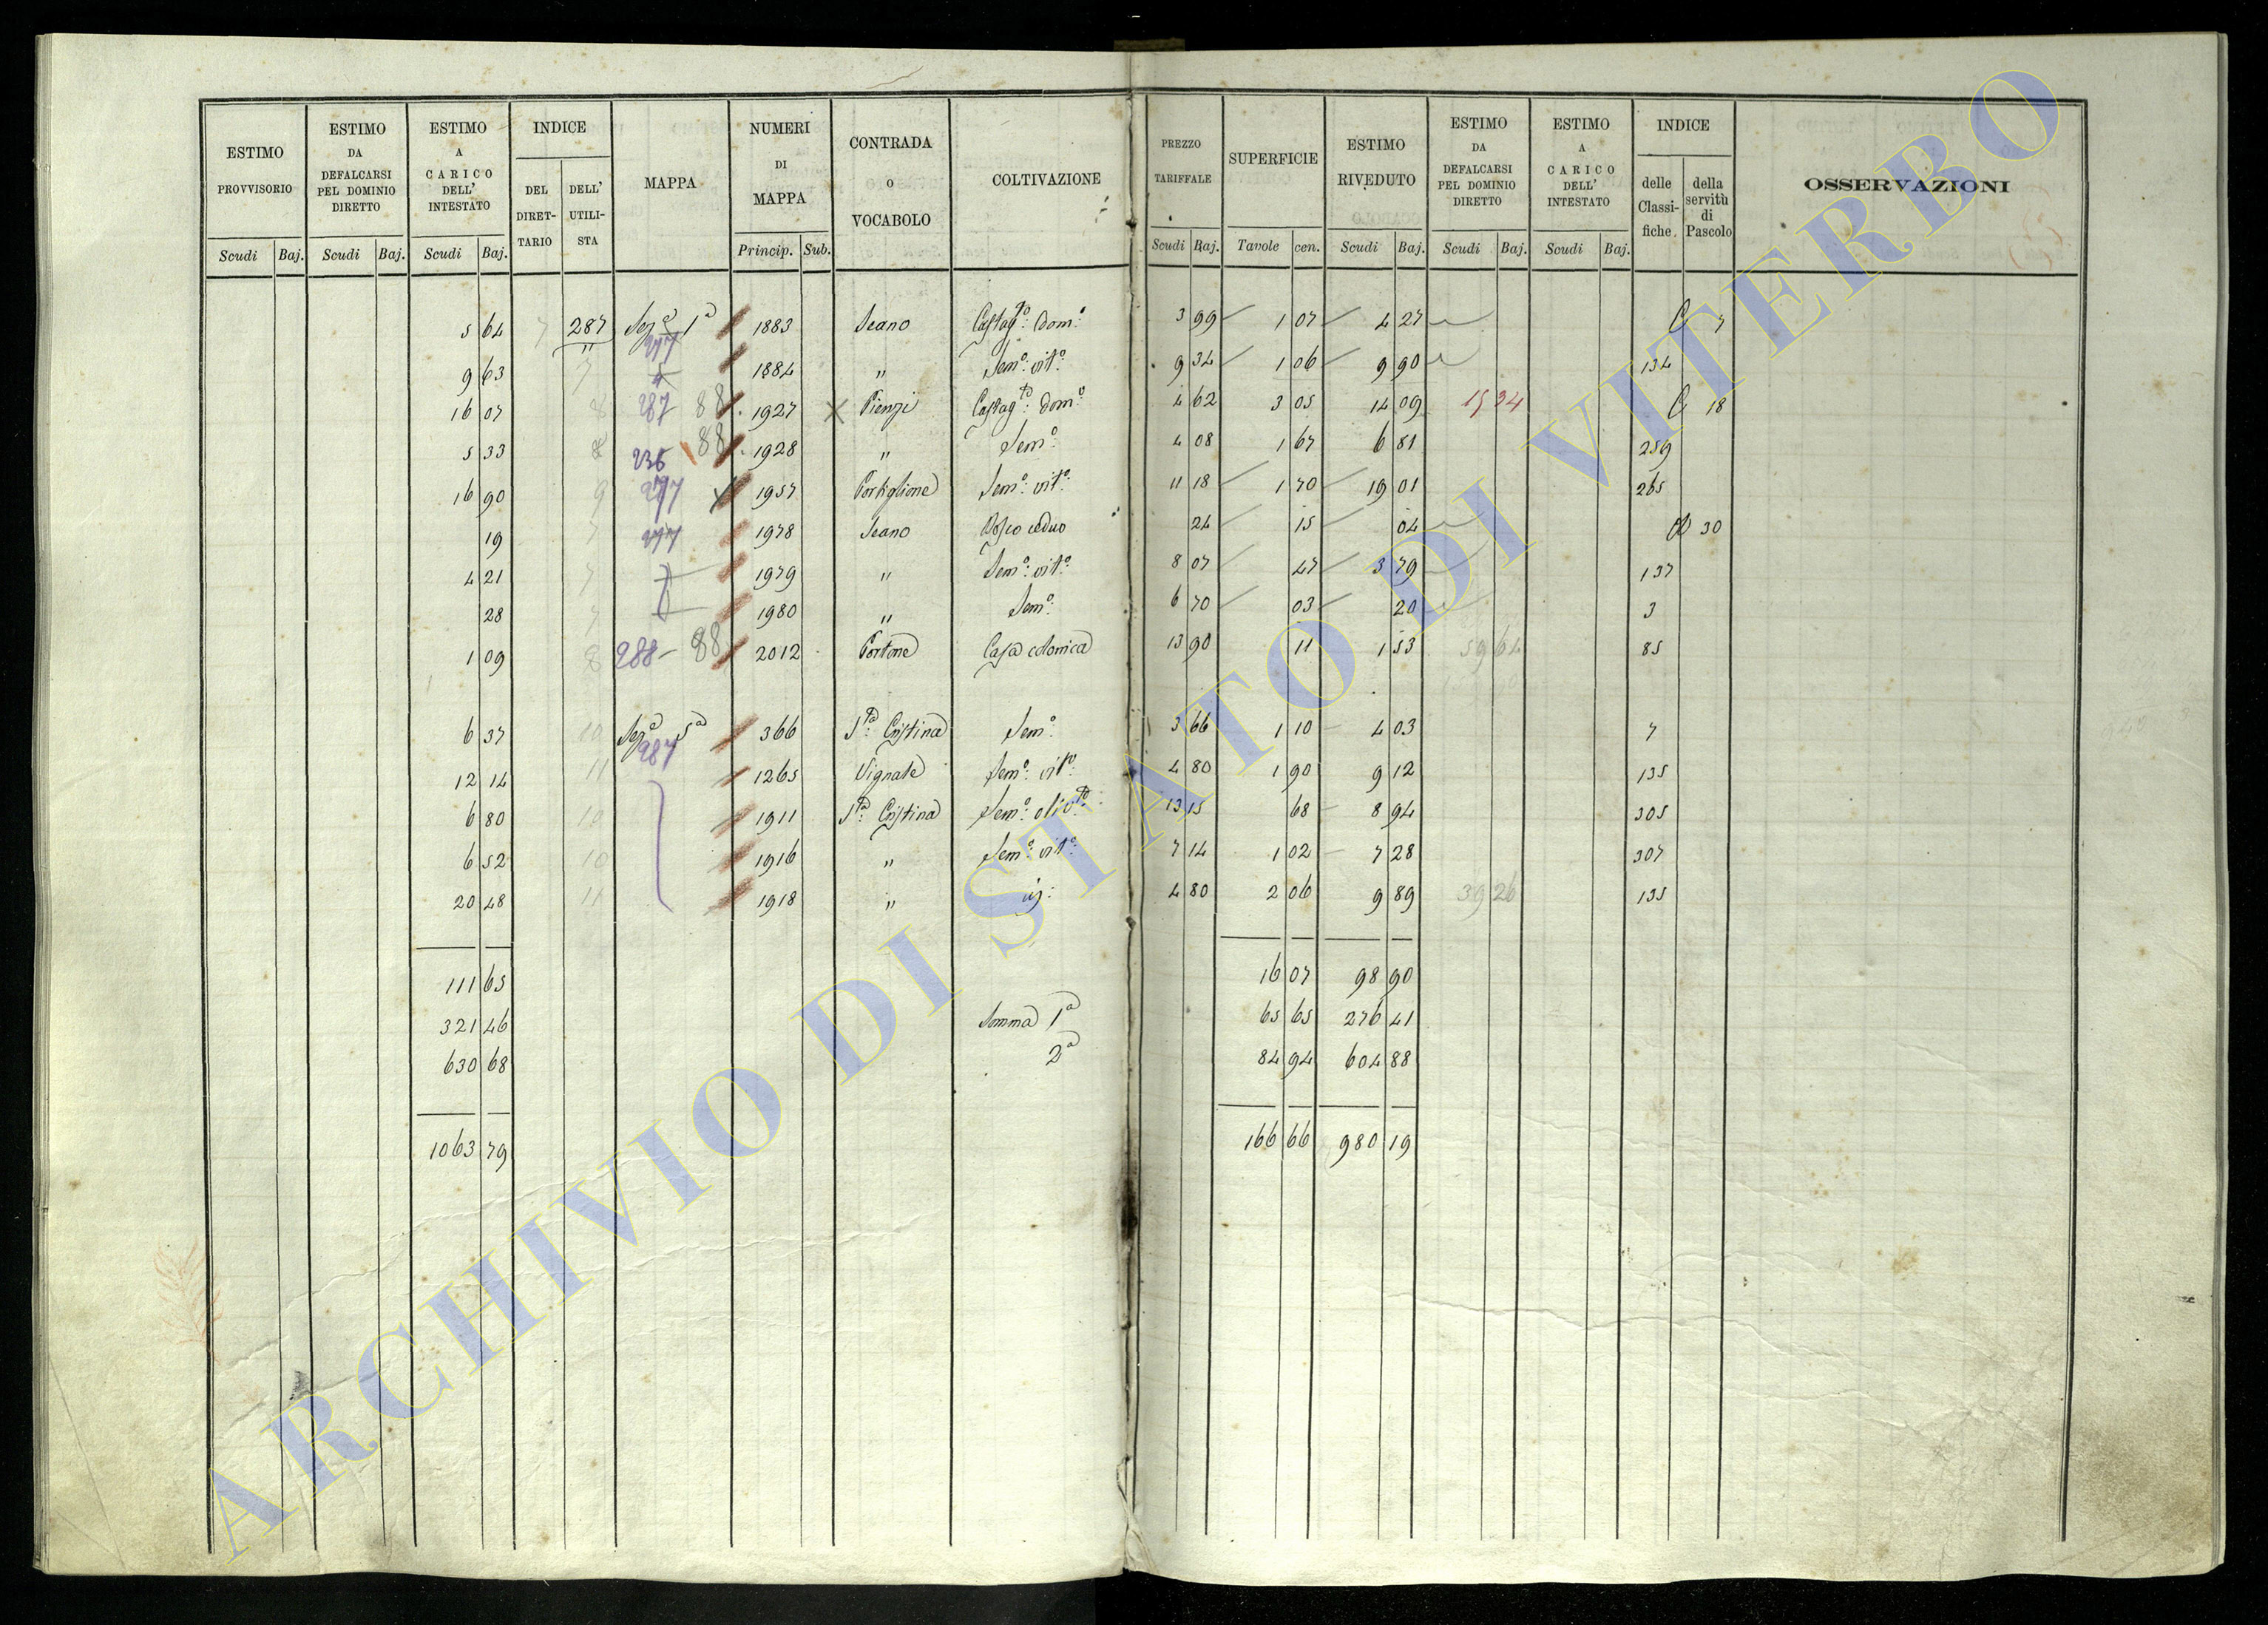 ESTIMO PROVVISORIO | ESTIMO DA DEFALCARSI PEL DOMINIO DIRETTO | ESTIMO A CARICO DELL' INTESTATO | INDICE | MAPPA | NUMERI DI MAPPA | CONTRADA O VOCABOLO | COLTIVAZIONE | PREZZO TARIFFALE | SUPERFICIE | ESTIMO RIVEDUTO | ESTIMO DA DEFALCARSI PEL DOMINIO DIRETTO | ESTIMO A CARICO DELL' INTESTATO | INDICE | OSSERVAZIONI
DEL DIRETTARIO | DELL' UTILISTA | delle Classifiche | della servitù di Pascolo
Scudi Baj. | Scudi Baj. | Scudi Baj. | Princip. Sub. | Scudi Baj. | Tavole cen. | Scudi Baj. | Scudi Baj. | Scudi Baj.
5 64 | 7 | 287 | Sezᵉ 1ª 277 | 1883 | Seano | Castagᵗᵒ: Domᵒ | 3 99 | 1 07 | 4 27 | C 7
9 63 | 7 | " | 1884 | " | Semᵒ: vitᵒ: | 9 34 | 1 06 | 9 90 | 134
16 07 | 8 | 287 88 | 1927 | Pienzi | Castagᵗᵒ: Domᵒ | 4 62 | 3 05 | 14 09 | 15 34 | C 18
5 33 | 8 | 236 88 | 1928 | " | Semᵒ: | 4 08 | 1 67 | 6 81 | 259
16 90 | 9 | 277 | 1957 | Portiglione | Semᵒ: vitᵒ: | 11 18 | 1 70 | 19 01 | 265
19 | 7 | 277 | 1978 | Seano | Bosco ceduo | 24 | 15 | 04 | 30
4 21 | 7 | 1979 | " | Semᵒ: vitᵒ: | 8 07 | 47 | 3 79 | 137
28 | 7 | 1980 | " | Semᵒ: | 6 70 | 03 | 20 | 3
1 09 | 8 | 288 - 88 | 2012 | Portone | Casa colonica | 13 90 | 11 | 1 53 | 59 64 | 85
6 37 | 10 | Sezᵉ 5ª 287 | 366 | Sᵗᵃ: Cristina | Semᵒ: | 3 66 | 1 10 | 4 03 | 7
12 14 | 11 | 1265 | Vignale | Semᵒ: vitᵒ: | 4 80 | 1 90 | 9 12 | 135
6 80 | 10 | 1911 | Sᵗᵃ: Cristina | Semᵒ: olivᵗᵒ: | 13 15 | 68 | 8 94 | 305
6 52 | 10 | 1916 | " | Semᵒ: vitᵒ: | 7 14 | 1 02 | 7 28 | 307
20 48 | 11 | 1918 | " | 4 80 | 2 06 | 9 89 | 39 26 | 135
111 65 | 16 07 | 98 90
321 46 | Somma 1ª | 65 65 | 276 41
630 68 | 2ª | 84 94 | 604 88
1063 79 | 166 66 | 980 19
ARCHIVIO DI STATO DI VITERBO